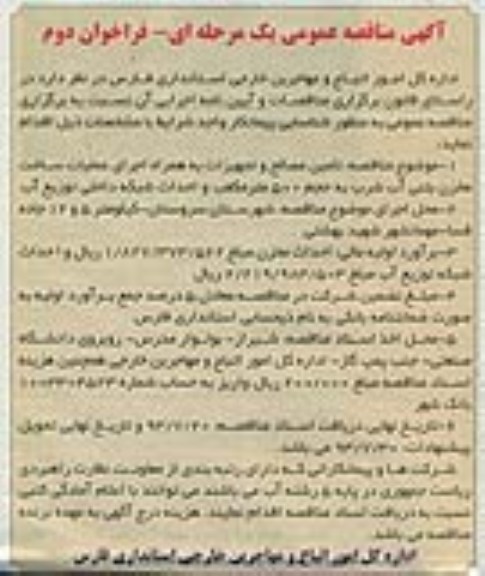 آگهی مناقصه عمومی یک مرحله ای- فراخوان دوم
اداره کل امور اتباع و مهاجرین خارجی استانداری فارس در نظر دارد در
راستای قانون برگزاری مناقصات و آیین نامه اجرایی آن نسبت به برگزاری
مناقصه عمومی به منظور شناسایی پیمانکار واجد شرایط با مشخصات ذیل اقدام
نماید:
۱-موضوع مناقصه: تامین مصالح و تجهیزات به همراه اجرای عملیات ساخت
مخزن بتنی آب شرب به حجم ۵۰۰ مترمکعب و احداث شبکه داخلی توزیع آب
۲-محل اجرای موضوع مناقصه: شهرستان سروستان-کیلومتر ۵ و ۱۲ جاده
فسا-مهمانشهر شهید بهشتی
۳-برآورد اولیه مالی: احداث مخزن مبلغ ریال و احداث
شبکه توزیع آب مبلغ ریال
۴-مبلغ تضمین شرکت در مناقصه معادل ۵ درصد جمع برآورد اولیه به
صورت ضمانتنامه بانکی به نام ذیحسابی استانداری فارس
۵-محل اخذ اسناد مناقصه: شیراز- بولوار مدرس- روبروی دانشگاه
صنعتی- جنب پمپ گاز- اداره کل امور اتباع و مهاجرین خارجی همچنین هزینه
اسناد مناقصه مبلغ ریال واریز به حساب شماره
بانک شهر
۶-تاریخ نهایی دریافت اسناد مناقصه: ۹۳/۷/۲۰ و تاریخ نهایی تحویل
پیشنهادات: ۹۳/۷/۳۰ می باشد.
شرکت ها و پیمانکارانی که دارای رتبه بندی از معاونت نظارت راهبردی
ریاست جمهوری در پایه ۵ رشته آب می باشند می توانند با اعلام آمادگی کتبی
نسبت به دریافت اسناد مناقصه اقدام نمایند. هزینه درج آگهی به عهده برنده
مناقصه می باشد.
اداره کل امور اتباع و مهاجرین خارجی استانداری فارس